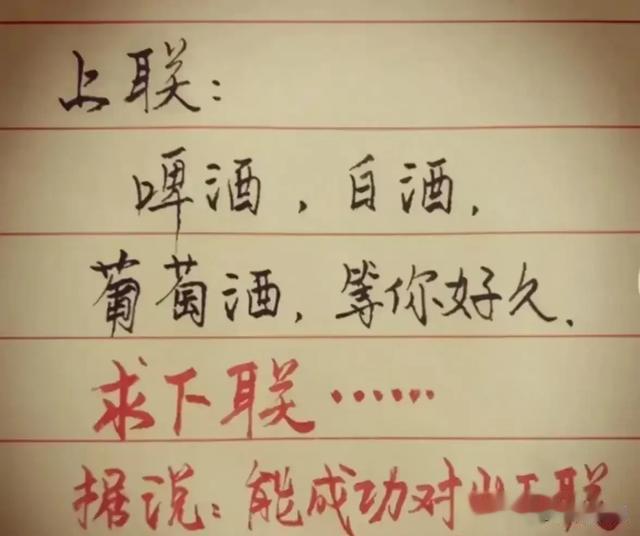 上联：
啤酒，白酒，
葡萄酒，等你好久．
求下联……
据说：能成功对出下联